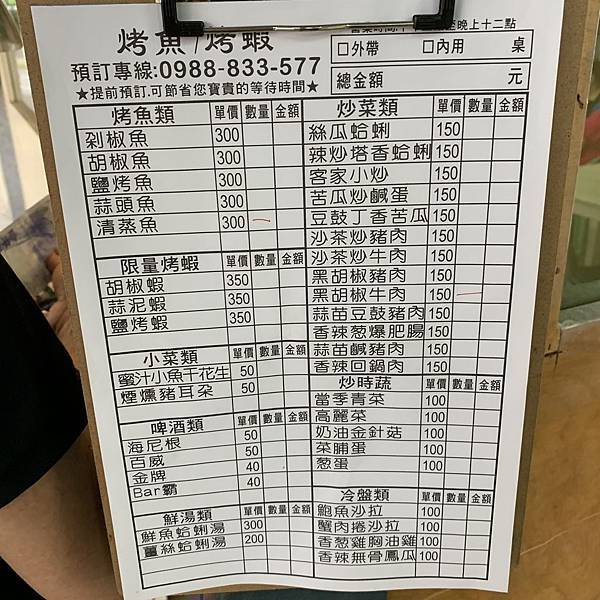 烤魚/烤蝦
預訂專線:0988-833-577
★提前預訂.可節省您寶貴的等待時間★
晚上十二點
□外帶 □內用 桌
總金額 元
烤魚類 單價 數量 金額
剁椒魚 300
胡椒魚 300
鹽烤魚 300
蒜頭魚 300
清蒸魚 300
限量烤蝦 單價 數量 金額
胡椒蝦 350
蒜泥蝦 350
鹽烤蝦 350
小菜類 單價 數量 金額
蜜汁小魚干花生 50
煙燻豬耳朵 50
啤酒類 單價 數量 金額
海尼根 50
百威 50
金牌 40
Bar霸 40
鮮湯類 單價 數量 金額
鮮魚蛤蜊湯 300
薑絲蛤蜊湯 200
炒菜類 單價 數量 金額
絲瓜蛤蜊 150
辣炒塔香蛤蜊 150
客家小炒 150
苦瓜炒鹹蛋 150
豆鼓丁香苦瓜 150
沙茶炒豬肉 150
沙茶炒牛肉 150
黑胡椒豬肉 150
黑胡椒牛肉 150
蒜苗豆鼓豬肉 150
香辣葱爆肥腸 150
蒜苗鹹豬肉 150
香辣回鍋肉 150
炒時蔬 單價 數量 金額
當季青菜 100
高麗菜 100
奶油金針菇 100
菜脯蛋 100
葱蛋 100
冷盤類 單價 數量 金額
鮑魚沙拉 100
蟹肉捲沙拉 100
香葱雞胸油雞 100
香辣無骨鳳爪 100